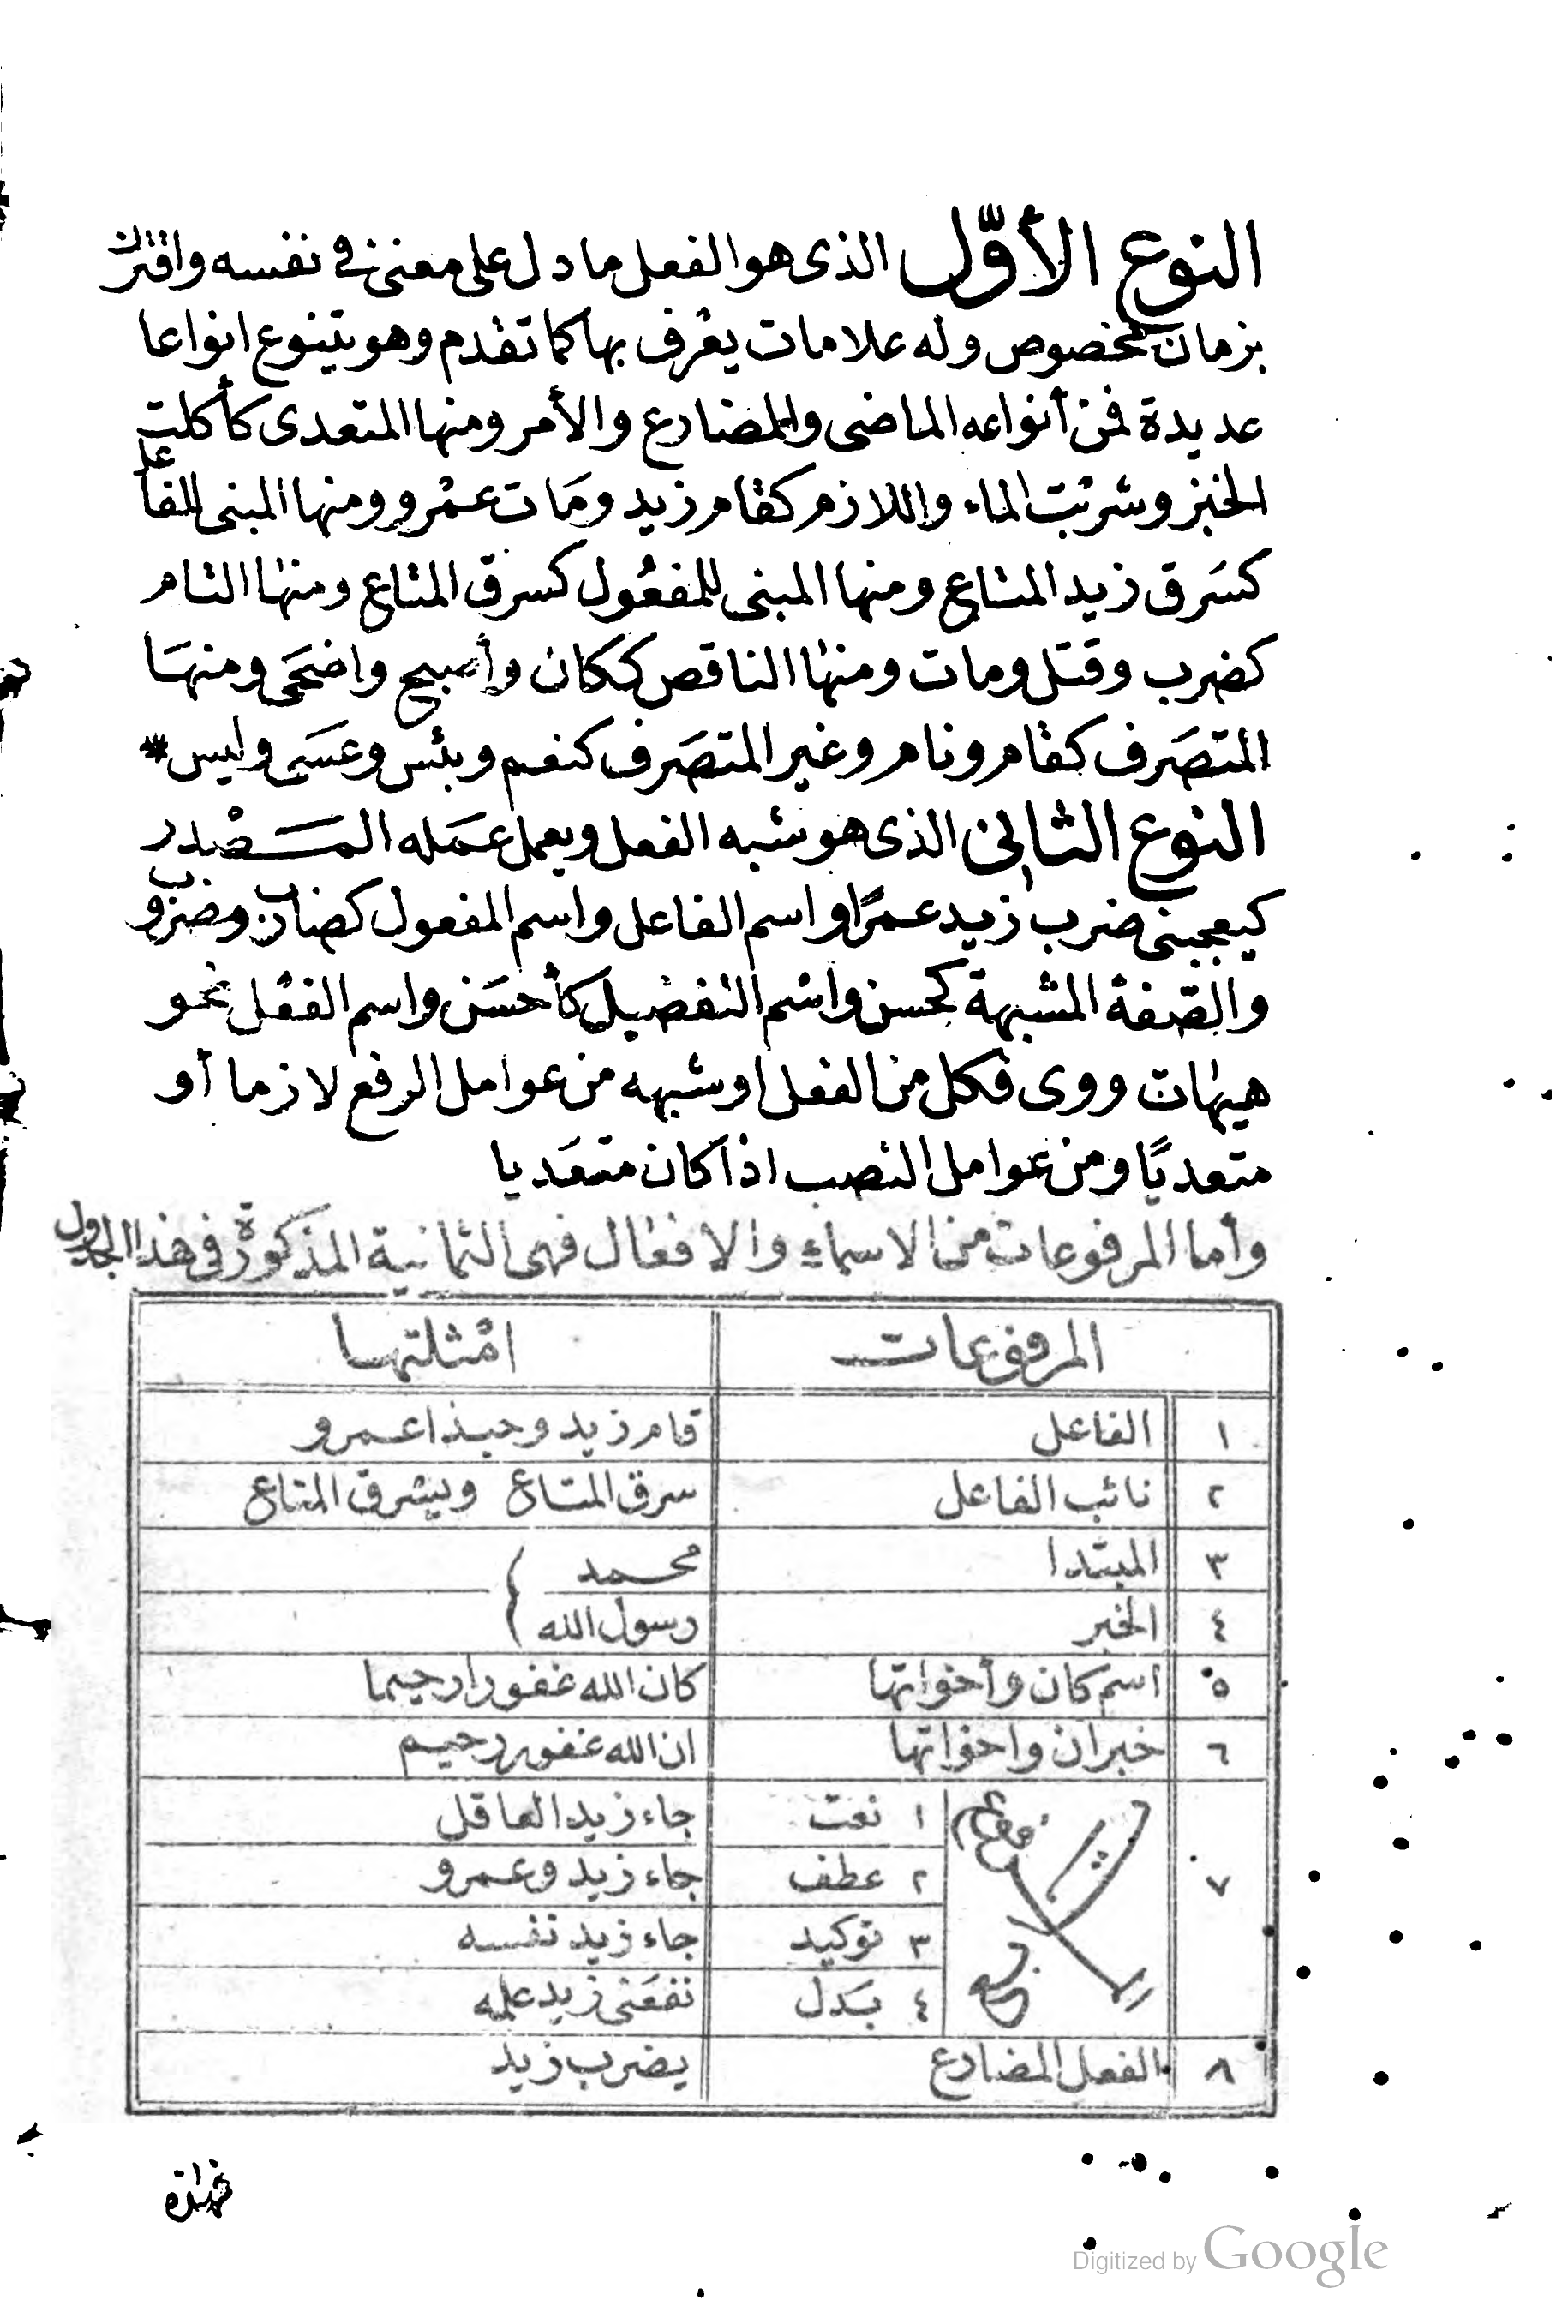 النوع الأوّل الذى هو الفعل ما دل على معنى فى نفسه واقترن
بزمان مخصوص وله علامات يعرف بها كما تقدم وهو يتنوع انواعا
عديدة فمن أنواعه الماضى والمضارع والأمر ومنها المتعدى كأكلت
الخبز وشربت الماء واللازم كقام زيد ومات عمرو ومنها المبنى للفاعل
كسَرق زيد المتاع ومنها المبنى للمفعُول كسرق المتاع ومنها التام
كضرب وقتل ومات ومنها الناقص ككان وأصبح واضحَى ومنهَا
المتصَرف كقام ونام وغير المتصَرف كنعم وبئس وعسَى وليس *
النوع الثانى الذى هو شبه الفعل ويعمل عمَله المَصْدر
كيعجبنى ضرب زيد عمرًا واسم الفاعل واسم المفعول كضارب ومضروب
والصّفة المشبهة كحسن واسم التفضيل كأحسَن واسم الفعل نحو
هيهات ووى فكل من الفعل او شبهه من عوامل الرفع لازما أو
متعديًا ومن عوامل النصب اذا كان متعَديا
وأما المرفوعات من الاسماء والافعال فهى الثمانية المذكورة فى هذا الجدول
المرفوعات امثلتها
١ الفاعل قام زيد وحبذا عمرو
٢ نائب الفاعل سرق المتاع ويسرق المتاع
٣ المبتدا محمد
٤ الخبر رسول الله
٥ اسم كان وأخواتها كان الله غفورا رحيما
٦ خبر ان واخواتها ان الله غفور رحيم
٧
١ نعت جاء زيد العاقل
٢ عطف جاء زيد وعمرو
٣ توكيد جاء زيد نفسه
٤ بَدل نفعَنى زيد علمه
٨ الفعل المضارع يضرب زيد
فهذه
Digitized by Google